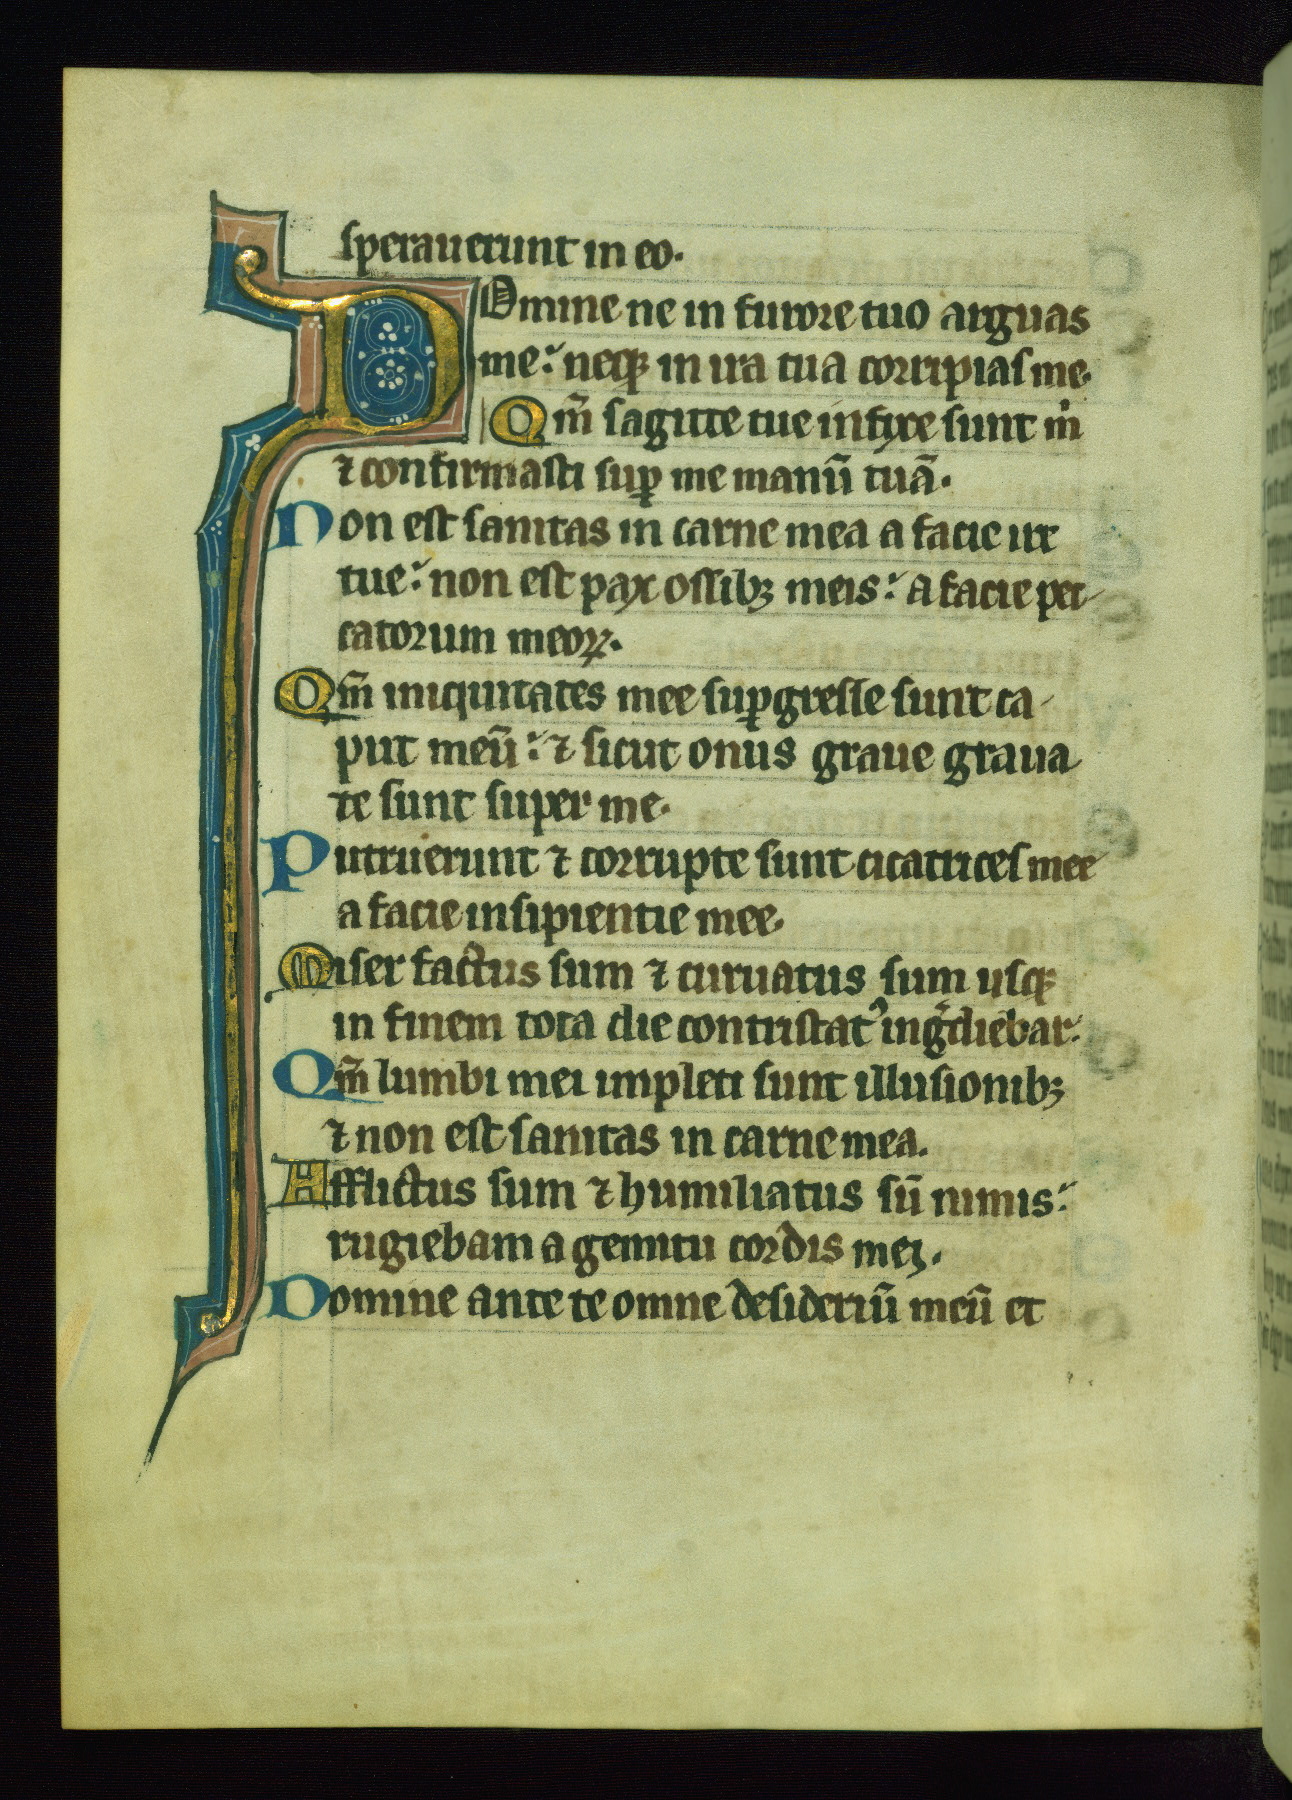 sperauerunt in eo.
Domine ne in furore tuo arguas
me: neq₃ in ira tua corripias me.
Qm̄ sagitte tue infixe sunt m̍
⁊ confirmasti suꝑ me manū tuā.
Non est sanitas in carne mea a facie ire
tue: non est pax ossib₃ meis: a facie pec-
catorum meoꝝ.
Qm̄ iniquitates mee suꝑgresse sunt ca-
put meū: ⁊ sicut onus graue graua
te sunt super me.
Putruerunt ⁊ corrupte sunt cicatrices mee
a facie insipientie mee.
Miser factus sum ⁊ curuatus sum usq₃
in finem tota die contristat᾽ ingͣdiebar.
Qm̄ lumbi mei impleti sunt illusionib₃
⁊ non est sanitas in carne mea.
Afflictus sum ⁊ humiliatus sū nimis:
rugiebam a gemitu cordis mei.
Domine ante te omne desideriū meū et